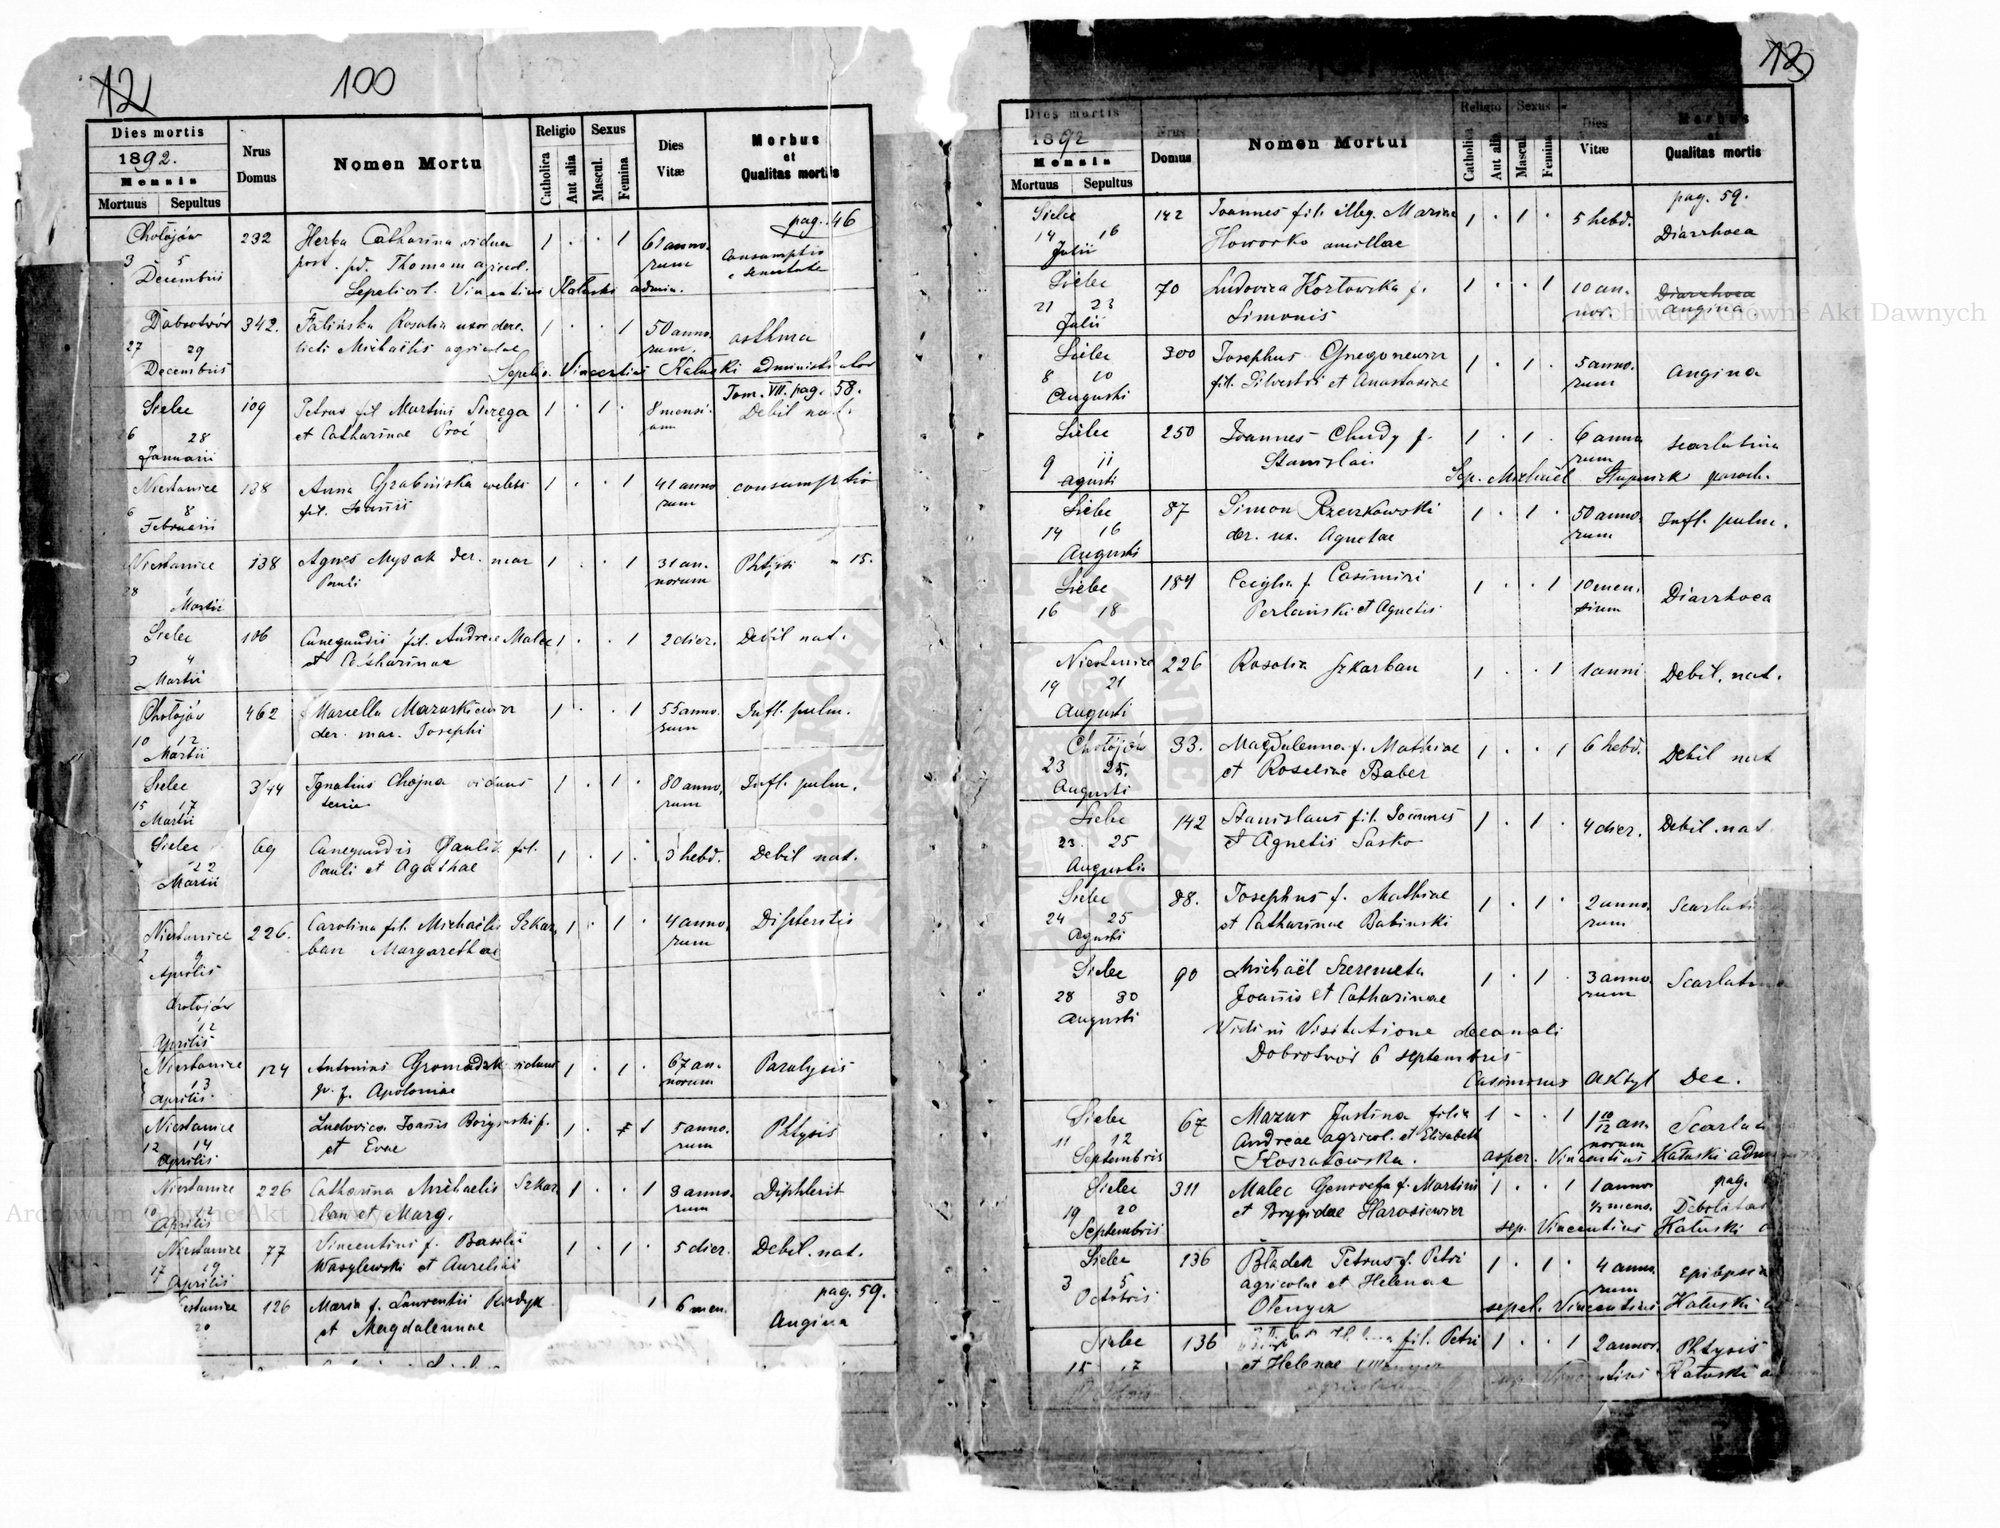 12
100
Dies mortis
1892.
Mensis
Mortuus Sepultus
Nrus Domus
Nomen Mortu
Religio
Catholica
Aut alia
Sexus
Mascul.
Femina
Dies Vitæ
Morbus et Qualitas mortis
pag. 46
Chołojów 232 Herba Catharina vidua 1 . . 1 61 anno- Consumptio
3 5 post. pd. Thomam agricol. rum e senectute
Decembris Sepelivit Vincentius Kałuski admin.
Dobrotwór 342. Falińska Rosalia uxor dere- 1 . . 1 50 anno- asthma
27 29 licti Michaelis agricolae rum.
Decembris Sepeliv. Vincentius Kałuski administrator
Tom. VII. pag. 58.
Sielec 109 Petrus fil Martini 1 . 1 . 8 mensi- Debil nat.
6 28 et Catharinae Proć um
Januarii
Niestanice 138 Anna Grabińska 1 . . 1 41 anno consumptio
6 8 fil. Joannis rum
Februarii
Niestanice 138 Agnes Mysak der. mar 1 . . 1 31 an- Phtysis " 15.
28 1 Pauli norum
Martii
Sielec 106 Cunegundis fil. Andreae Malec 1 . . 1 2 dier. Debil nat.
3 4 et Catharinae
Martii
Chołojów 462 Marcella Mazurkiewicz 1 . . 1 55 anno- Infl. pulm.
10 12 der. mar. Josephi rum
Martii
Sielec 344 Ignatius Chojna viduus 1 . 1 . 80 anno, Infl. pulm.
15 17 rum
Martii
Sielec 69 Cunegundis fil. 1 . 1 . 3 hebd. Debil nat.
22 Pauli et Agathae
Martii
Niestanice 226. Carolina fil. Michaelis Szkar- 1 . 1 . 4 anno, Diphteritis
2 9 ban Margarethae rum
Aprilis
Chołojów
12
Aprilis
Niestanice 124 Antonius viduus 1 . 1 . 67 an- Paralysis
13 p. f. Apoloniae norum
Aprilis
Niestanice Ludovica Joannis f. 1 . 1 5 anno- Phtysis
12 14 et Evae rum
Aprilis
Niestanice 226 Catharina Michaelis Szkar 1 . . 1 8 anno- Diphterit
10 12 ban et Marg. rum
Aprilis
Niestanice 77 Vincentius f. Basilii 1 . 1 . 5 dier. Debil. nat.
17 19 Wasylewski et Aureliae
Aprilis
pag. 59.
Niestanice 126 Maria f. Laurentii 1 6 men. Angina
20 et Magdalennae
13
Dies mortis
1892
Mensis
Mortuus Sepultus
Nrus Domus
Nomen Mortui
Religio
Catholica
Aut alia
Sexus
Mascul.
Femina
Dies Vitæ
Morbus et Qualitas mortis
pag. 59.
Sielec 142 Joannes fil. illeg. Mariae 1 . 1 . 5 hebd. Diarrhoea
14 16 Howorko ancillae
Julii
Sielec 70 Ludovica Kozłowska f. 1 . . 1 10 an- Diarrhoea
21 23 Simonis nor. angina
Julii
Sielec 300 Josephus 1 . 1 . 5 anno- angina
8 10 fil. Silvestri et Anastasiae rum
Augusti
Sielec 250 Joannes Chudy f. 1 . 1 . 6 anno scarlatina
9 11 Stanislai rum
Agusti Sep. Michael Stupnicki paroch.
Sielec 87 Simon Rzeczkowski 1 . 1 . 50 anno- Infl. pulm.
14 16 der. ux. Agnetae rum
Augusti
Sielec 184 Cecylia f. Casimiri 1 . . 1 10 men- Diarrhoea
16 18 Perlański et Agnetis sium
Niestanice 226 Rosalia Szkarban 1 . . 1 1 anni Debil. nat.
19 21
Augusti
Chołojów 33. Magdalenna f. Mathiae 1 . . 1 6 hebd. Debil nat
23 25. et Rosaliae Baber
Augusti
Sielec 142 Stanislaus fil. Joannes 1 . 1 . 4 dier. Debil. nat
23 25 et Agnetis Sasko
Augusti
Sielec 88. Josephus f. Mathiae 1 . 1 . 2 anno- Scarlati
24 25 et Catharinae Babinski rum
Agusti
Sielec 90 Michaël Szeremeta 1 . 1 . 3 anno Scarlatina
28 30 Joannis et Catharinae rum
Augusti
Vidi in Visitatione decanali
Dobrotwór 6 septembris
Casimirus Dec.
Sielec 67 Mazur Justina filia 1 . . 1 1 10/12 an- Scarla
11 12 Andreae agricol. et Elisabeth norum
Septembris Kozakowska. asper. Vincentius Kałuski adm
Sielec 311 Malec Genovefa f. Martini 1 . . 1 1 anno pag.
19 20 et Brygidae Harasiewicz ½ mens. Debilitas
Septembris sep. Vincentius Kałuski a
Sielec 136 Bładek Petrus f. Petri 1 . 1 . 4 anno- Epilepsia
3 5 agricolae et Helenae rum
Octobris sepel. Vincentius Kałuski
Sielec 136 fil. Petri 1 . . 1 2 annor. Phtysis
15 17 et Helenae
Vincentius Kałuski
Archiwum Główne Akt Dawnych
Archiwum Główne Akt Dawnych